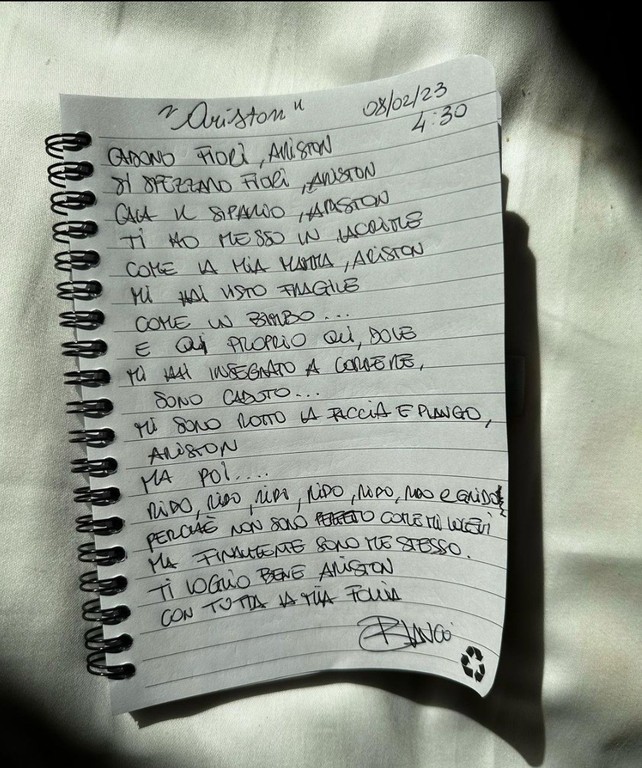 "Ariston" 08/02/23
4:30
CADONO FIORI, ARISTON
SI SPEZZANO FIORI, ARISTON
CALA IL SIPARIO, ARISTON
TI HO MESSO IN LACRIME
COME LA MIA MAMMA, ARISTON
MI HAI VISTO FRAGILE
COME UN BIMBO...
E QUI PROPRIO QUI, DOVE
MI HAI INSEGNATO A CORRERE,
SONO CADUTO...
MI SONO ROTTO LA FACCIA E PIANGO,
ARISTON
MA POI....
RIDO, RIDO, RIDO, RIDO, RIDO, RIDO E GRIDO
PERCHÉ NON SONO PERFETTO COME MI VOLEVI
MA FINALMENTE SONO ME STESSO.
TI VOGLIO BENE ARISTON
CON TUTTA LA MIA FOLLIA
BLANCO